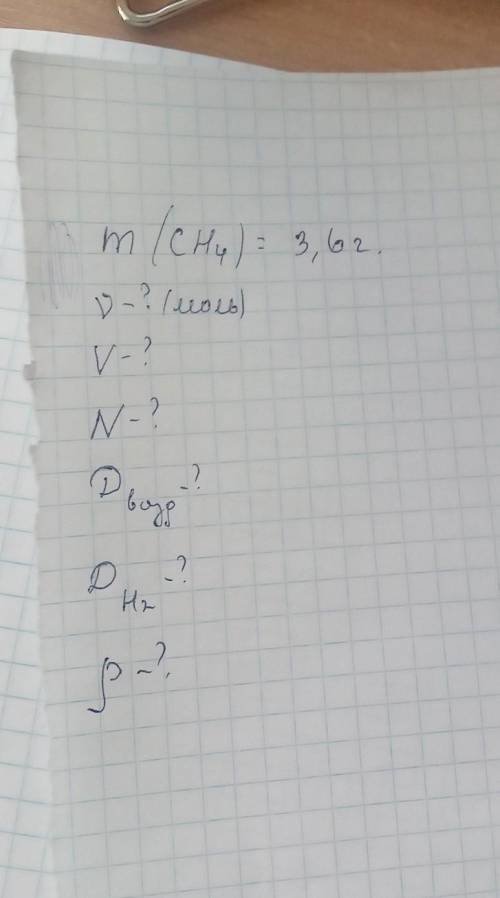 m (CH₄) = 3,6 г.
ν - ? (моль)
V - ?
N - ?
D возд - ?
D H₂ - ?
ρ - ?